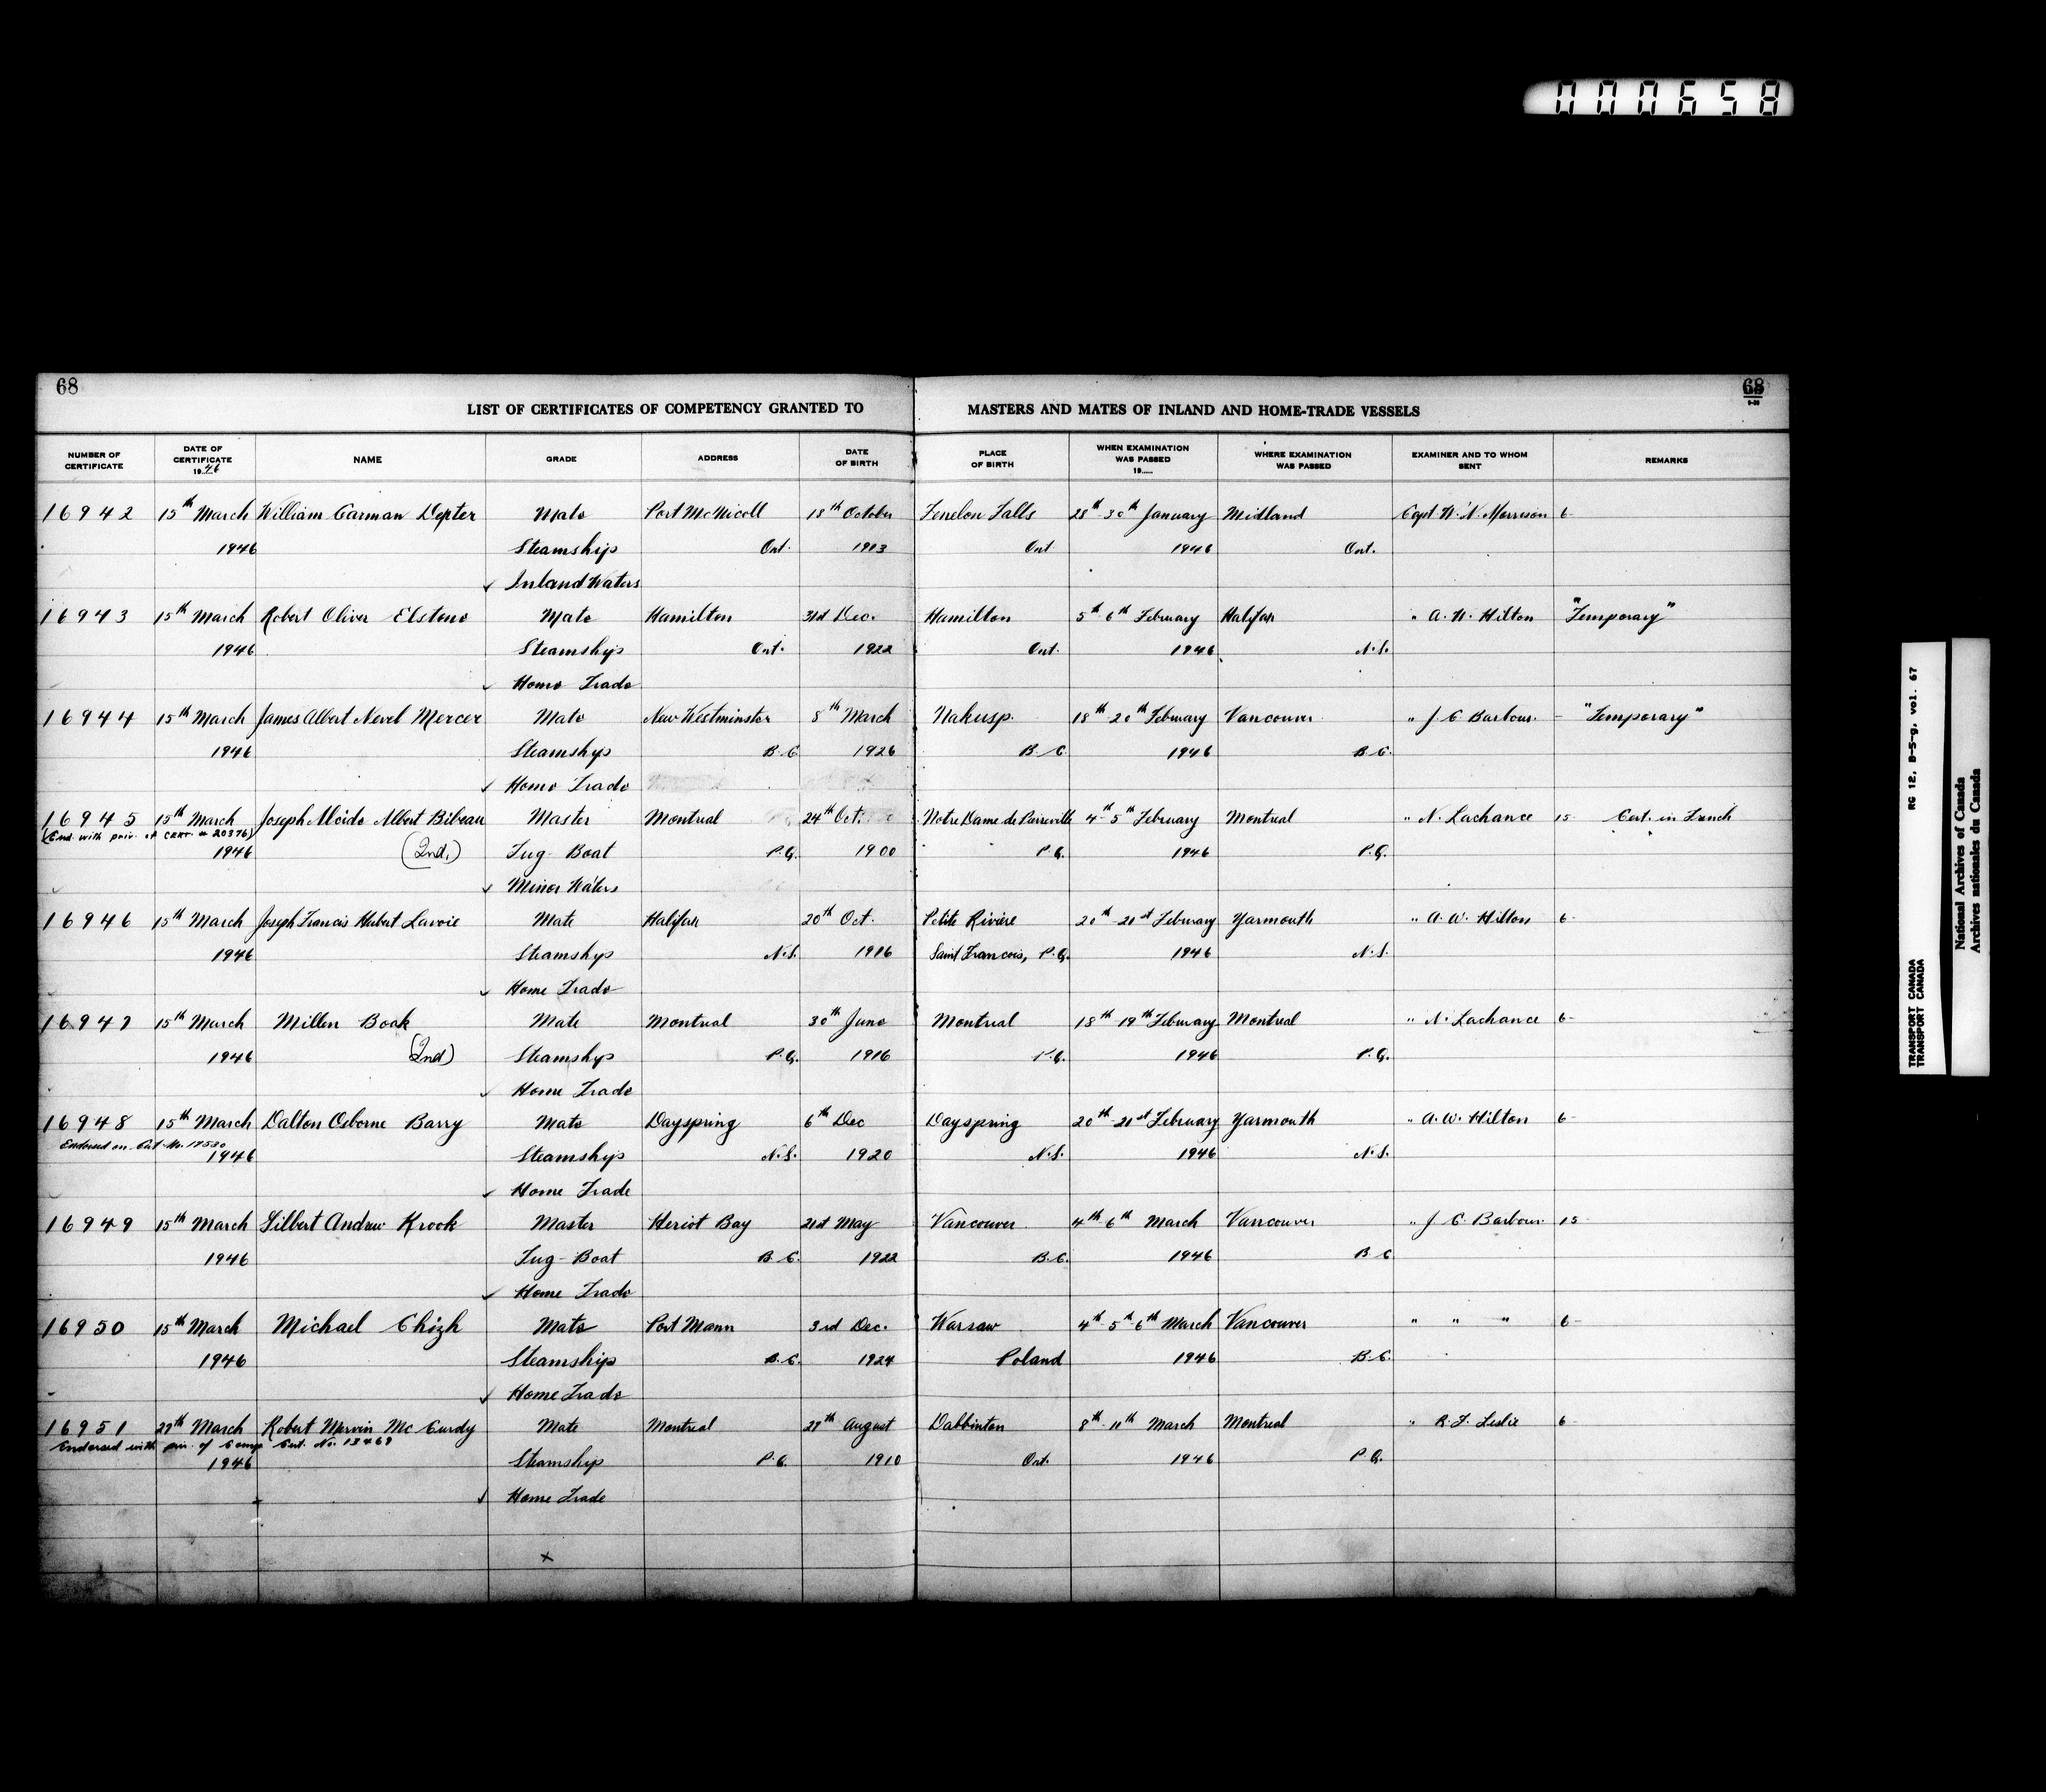 000658
68
68
9-39
LIST OF CERTIFICATES OF COMPETENCY GRANTED TO MASTERS AND MATES OF INLAND AND HOME-TRADE VESSELS
NUMBER OF CERTIFICATE DATE OF CERTIFICATE 1946 NAME GRADE ADDRESS DATE OF BIRTH PLACE OF BIRTH WHEN EXAMINATION WAS PASSED 19..... WHERE EXAMINATION WAS PASSED EXAMINER AND TO WHOM SENT REMARKS
16942 15th March William Carman Depter Mate Port McNicoll 18th October Fenelon Falls 28th-30th January Midland Capt W. N. Morrison 6-
1946 Steamship Ont. 1913 Ont 1946 Ont.
Inland Waters
16943 15th March Robert Oliver Elstone Mate Hamilton 31st Dec. Hamilton 5th-6th February Halifax " A. W. Hilton "Temporary"
1946 Steamship Ont. 1922 Ont. 1946 N.S.
Home Trade
16944 15th March James Albert Nevel Mercer Mate New Westminster 8th March Nakusp. 18th-20th February Vancouver " J. C. Barbour - "Temporary"
1946 Steamship B.C. 1926 B.C. 1946 B.C.
Home Trade
16945 15th March Joseph Moïde Albert Bibeau Master Montreal 24th Oct. Notre Dame de Pierreville 4th-5th February Montreal " N. Lachance 15- Cert. in French
(End. with priv. of CERT. # 20376)
1946 (2nd.) Tug-Boat P.Q. 1900 P.Q. 1946 P.Q.
Minor Waters
16946 15th March Joseph Francis Hubert Lavoie Mate Halifax 20th Oct. Petite Rivière 20th-21st February Yarmouth " A. W. Hilton 6-
1946 Steamship N.S. 1916 Saint Francois, P.Q. 1946 N.S.
Home Trade
16947 15th March Millen Boak Mate Montreal 30th June Montreal 18th-19th February Montreal " N. Lachance 6-
1946 (2nd) Steamship P.Q. 1916 P.Q. 1946 P.Q.
Home Trade
16948 15th March Dalton Osborne Barry Mate Dayspring 6th Dec Dayspring 20th-21st February Yarmouth " A. W. Hilton 6-
Endorsed on Cert. No. 17530
1946 Steamship N.S. 1920 N.S. 1946 N.S.
Home Trade
16949 15th March Gilbert Andrew Krook Master Heriot Bay 21st May Vancouver 4th-6th March Vancouver " J. C. Barbour 15-
1946 Tug-Boat B.C. 1922 B.C. 1946 B.C
Home Trade
16950 15th March Michael Chizh Mate Port Mann 3rd Dec. Warsaw 4th-5th-6th March Vancouver " " " 6-
1946 Steamship B.C. 1924 Poland 1946 B.C.
Home Trade
16951 27th March Robert Mervin McCurdy Mate Montreal 27th August Dabbinton 8th-11th March Montreal " R. F. Leslie 6-
Endorsed with priv. of Comp. Cert. No. 13469
1946 Steamship P.Q. 1910 Ont. 1946 P.Q.
Home Trade
x
RG 12, B-5-g, vol. 67
TRANSPORT CANADA
TRANSPORT CANADA
National Archives of Canada
Archives nationales du Canada